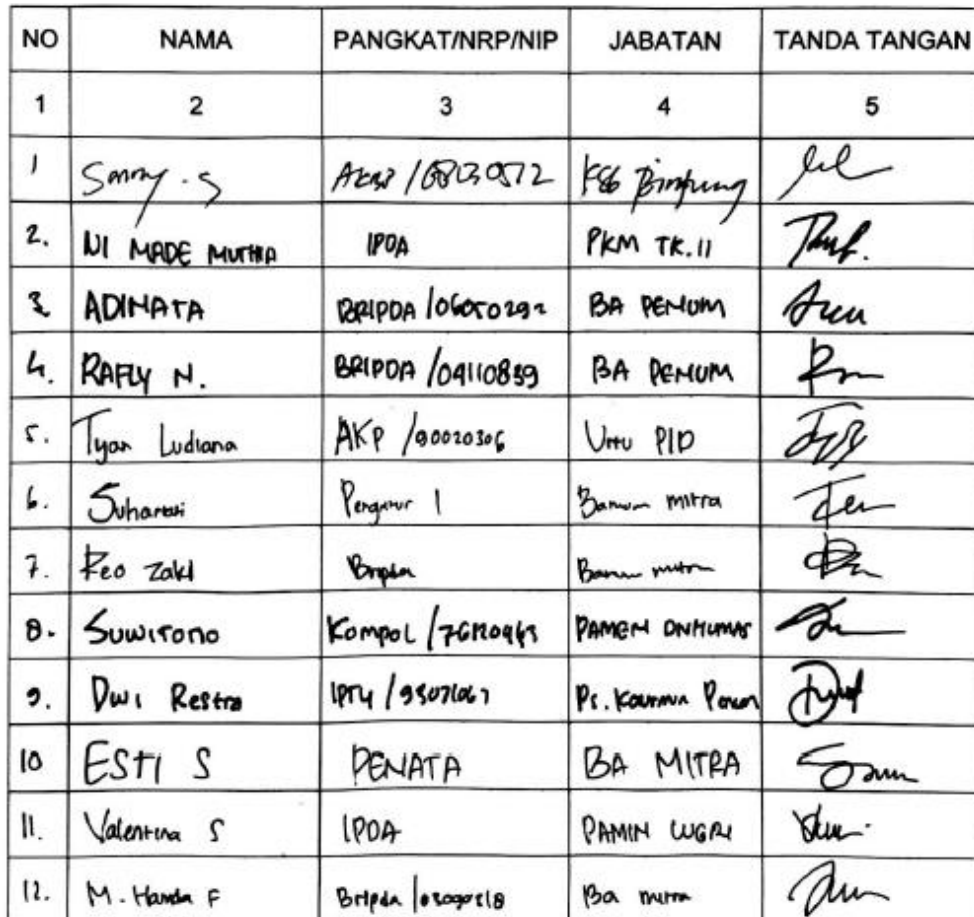 NO NAMA PANGKAT/NRP/NIP JABATAN TANDA TANGAN
1 2 3 4 5
1 Sonny . S AKBP / KSB
2. NI MADE MUTHIA IPDA PKM TK.II
3 ADINATA BRIPDA /06050292 BA PENUM
4. RAFLY N. BRIPDA /04110839 BA PENUM
5. Tyan Ludiana AKP /90020306 Urtu PID
6. Suharti Pengatur 1 Banum mitra
7. Reo Zaki Bripda Banum mitra
8. Suwitono Kompol / PAMEN DIVHUMAS
9. Dwi Restra IPTU / Ps. Penum
10 ESTI S PENATA BA MITRA
11. Valentina S IPDA PAMIN
12. M. Handa F Bripda / Ba mitra